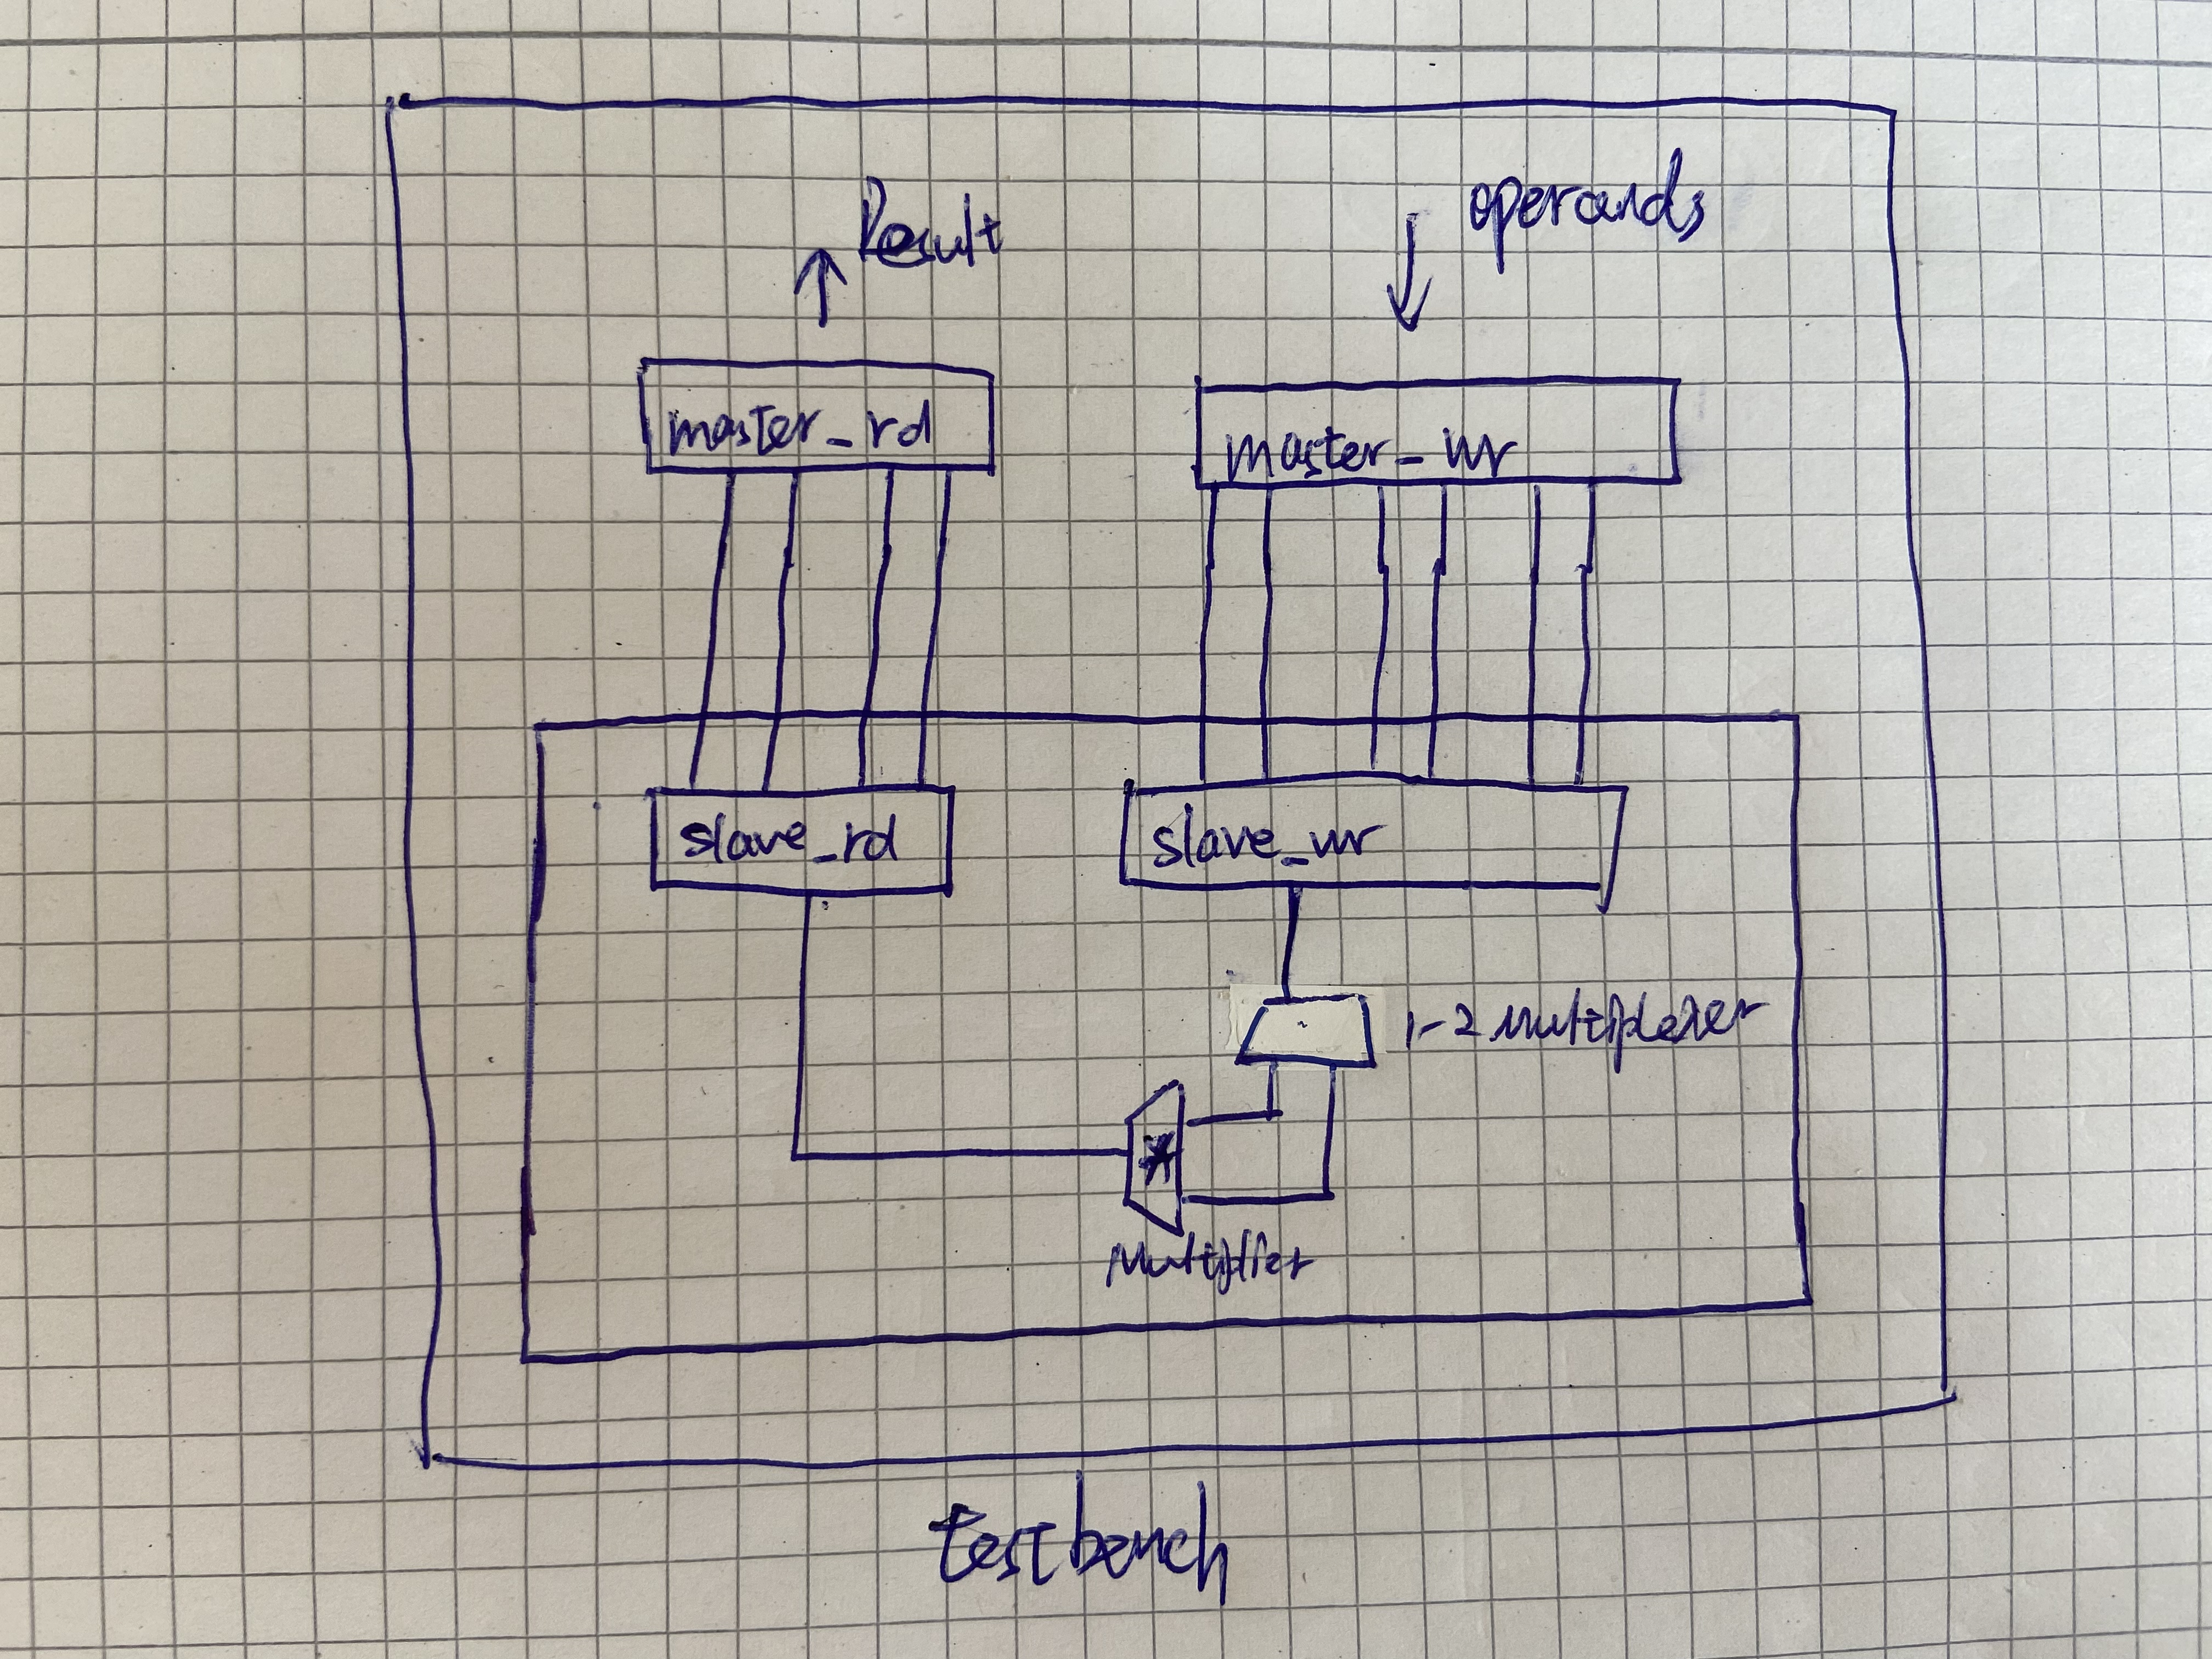 Result
operands
master_rd
master_wr
slave_rd
slave_wr
1-2 multiplexer
*
Multiplier
testbench